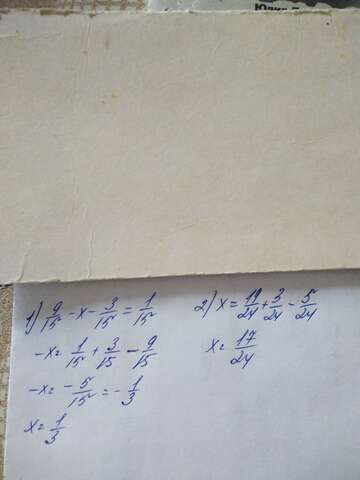 1) 9/15 - x - 3/15 = 1/15
-x = 1/15 + 3/15 - 9/15
-x = - 5/15 = - 1/3
x = 1/3
2) x = 19/24 + 3/24 - 5/24
x = 17/24